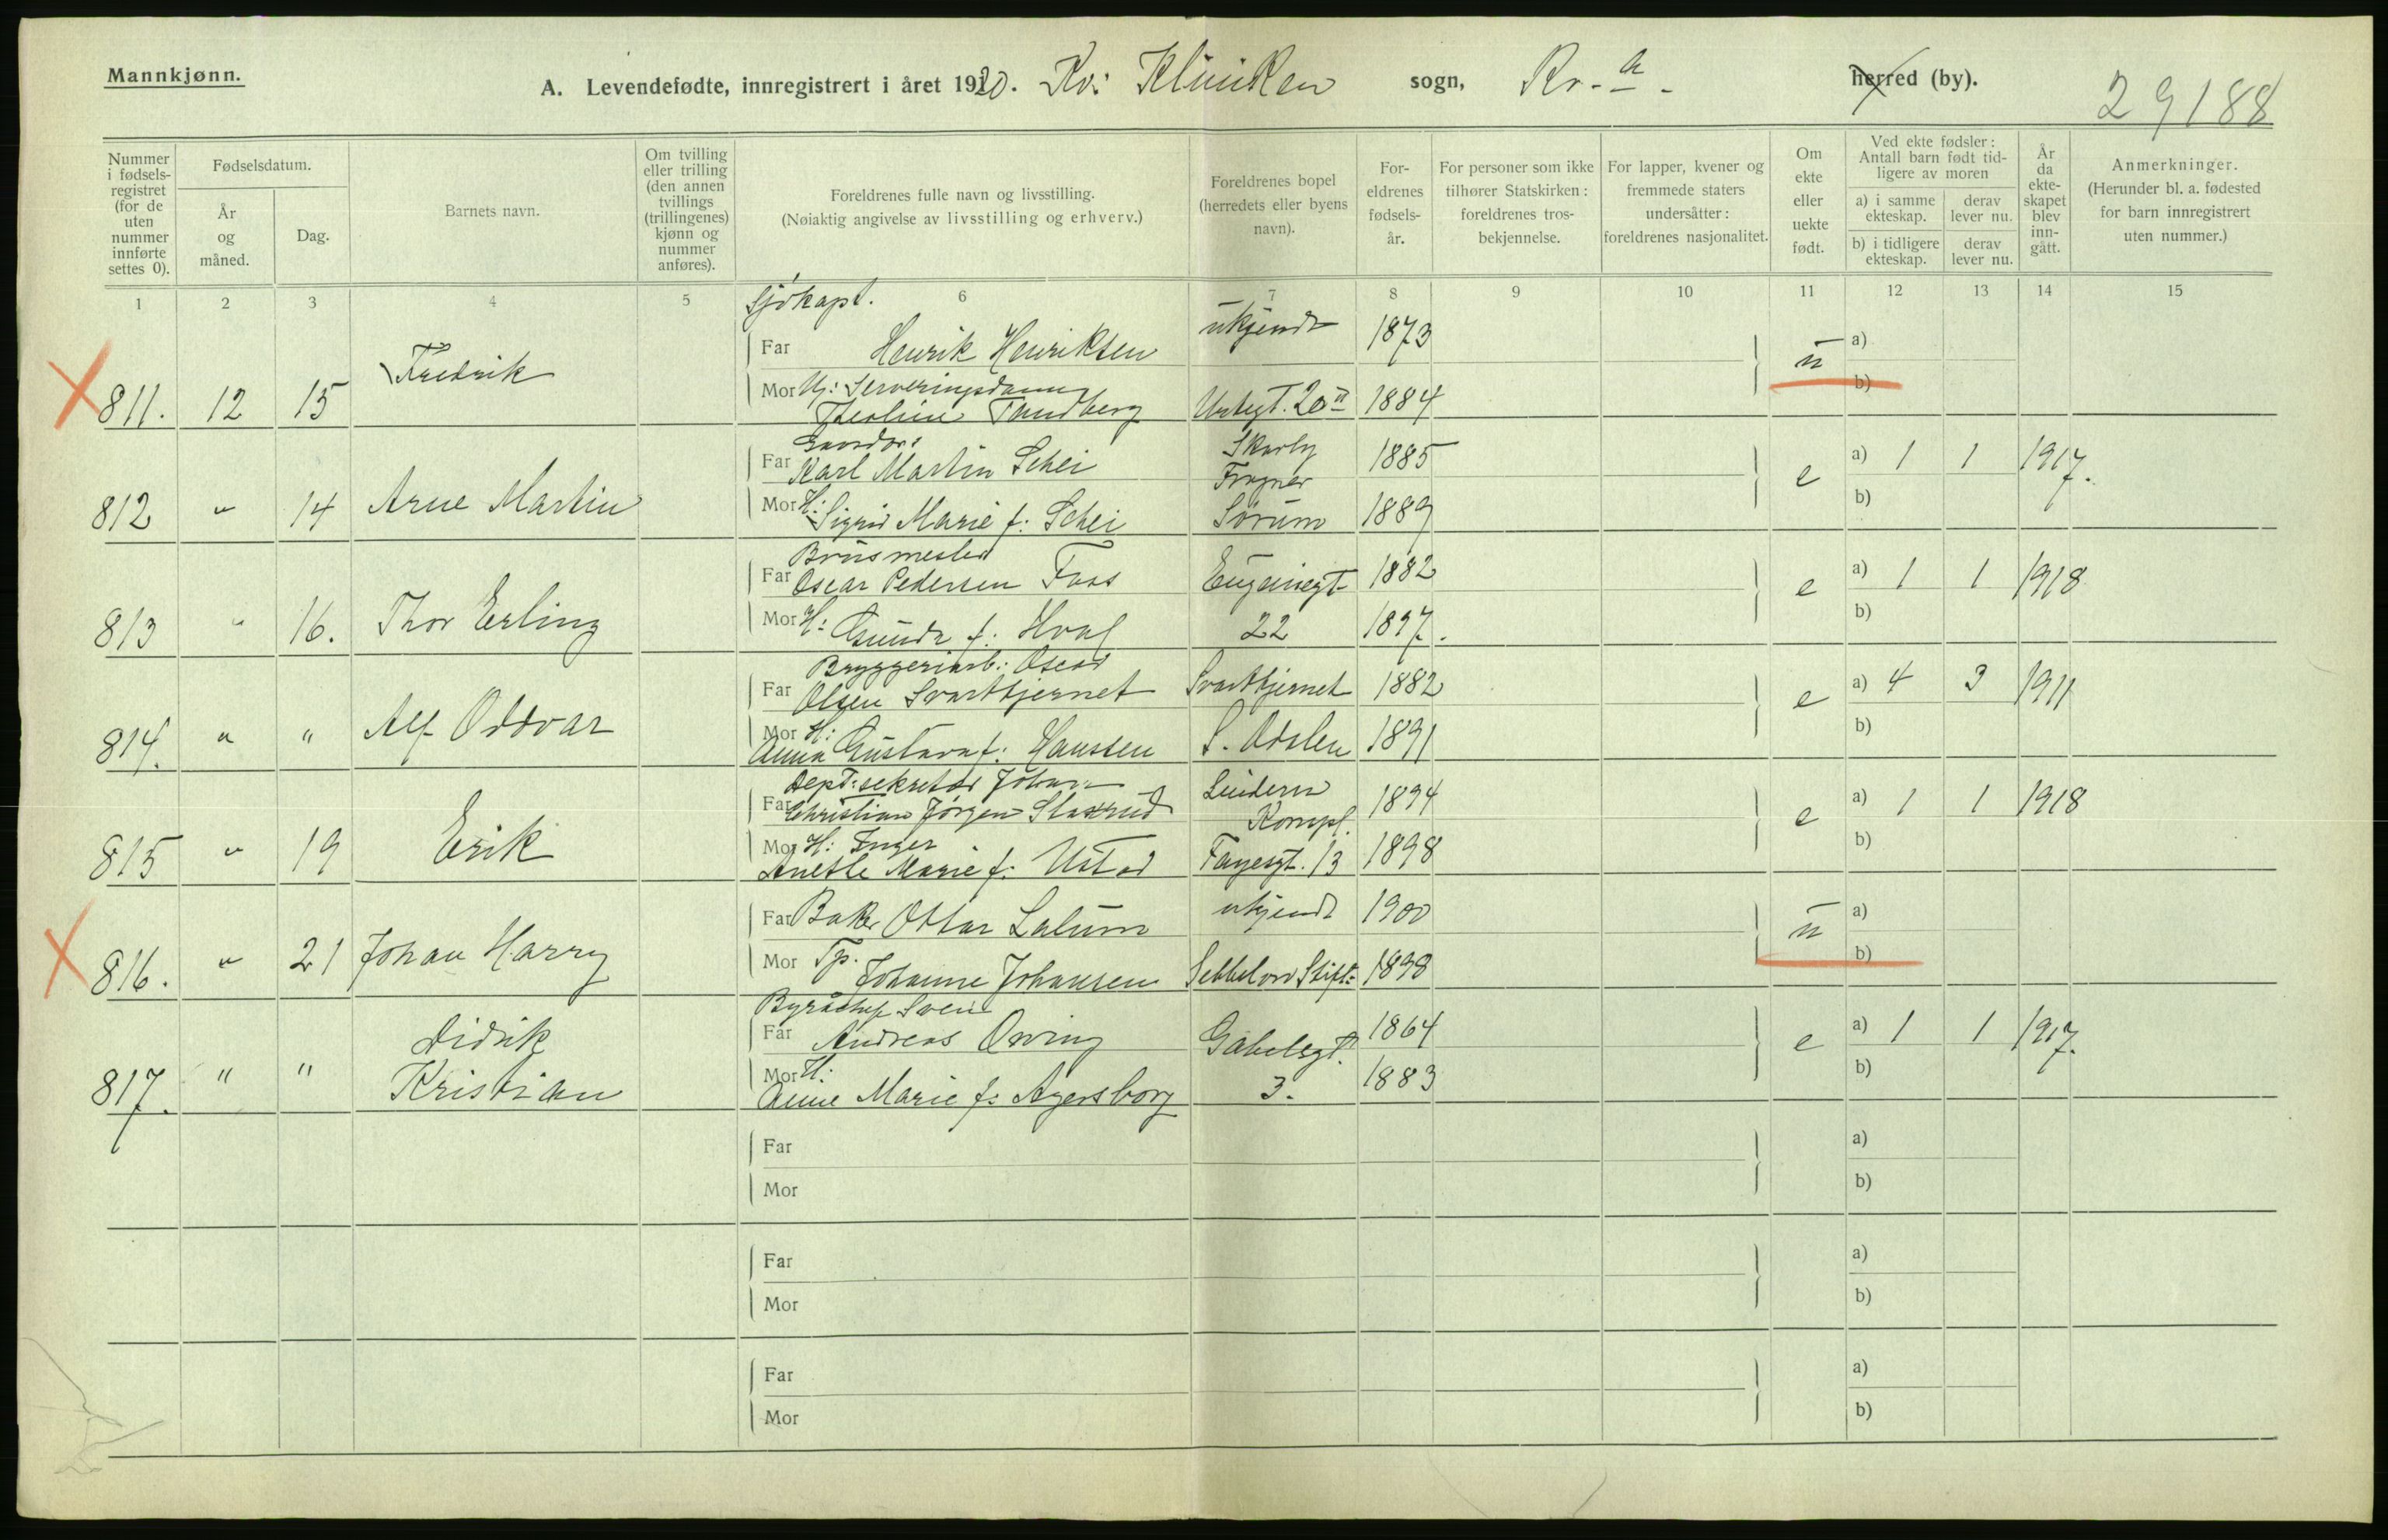 Mannkjønn.
A. Levendefødte, innregistrert i året 1920. Kv: Kliniken sogn, Kr.-a- herred (by).
29188
Nummer i fødsels-registret (for de uten nummer innførte settes 0).
Fødselsdatum.
År og måned.
Dag.
Barnets navn.
Om tvilling eller trilling (den annen tvillings (trillingenes) kjønn og nummer anføres).
Foreldrenes fulle navn og livsstilling.
(Nøiaktig angivelse av livsstilling og erhverv.)
Foreldrenes bopel (herredets eller byens navn).
For-eldrenes fødsels-år.
For personer som ikke tilhører Statskirken: foreldrenes tros-bekjennelse.
For lapper, kvener og fremmede staters undersåtter: foreldrenes nasjonalitet.
Om ekte eller uekte født.
Ved ekte fødsler: Antall barn født tid-ligere av moren
a) i samme ekteskap.
derav lever nu.
b) i tidligere ekteskap.
derav lever nu.
År da ekte-skapet blev inn-gått.
Anmerkninger.
(Herunder bl. a. fødested for barn innregistrert uten nummer.)
1 2 3 4 5 6 7 8 9 10 11 12 13 14 15
Sjøkapt.
Far Henrik Henriksen ukjendt 1873
811. 12 15 Fredrik ü a)
Mor Uj: Serveringsdame b)
Theoline Tandberg Urtegt. 20 II 1884
Gaardbr:
Far Karl Martin Schei Skarby Frogner 1885
812 " 14 Arne Martin e a) 1 1 1917.
Mor H: Sigrid Marie f: Schei Sørum 1889 b)
Brusmester
Far Oscar Pedersen Foss Eugeniegt 1882
813 " 16. Thor Erling e a) 1 1 1918
Mor H: Gunda f: Hval 22 1897. b)
Bryggeriarb: Oscar
Far Olsen Svarttjernet Svarttjernet 1882
814. " " Alf Oddvar e a) 4 3 1911
Mor H: b)
Anna Gustava f: Hanssen S. Odalen 1891
Dept: sekretær Johan
Far Christian Jørgen Staxrud Lindern Kompl. 1894
815 " 19 Erik e a) 1 1 1918
Mor H: Inger b)
Anette Marie f: Ustad Fayesgt. 13 1898
Far Baker Ottar Lalum ukjendt 1900
816. " 21 Johan Harry ü a)
Mor Tp. Johanne Johansen Sebbelows Stift: 1898 b)
Byråchef Svend
Far Andreas Qving Gabelsgt. 1864
817. " " Didrik Kristian e a) 1 1 1917.
Mor H: b)
Anne Marie f: Agersborg 3. 1883
Far a)
Mor b)
Far a)
Mor b)
Far a)
Mor b)